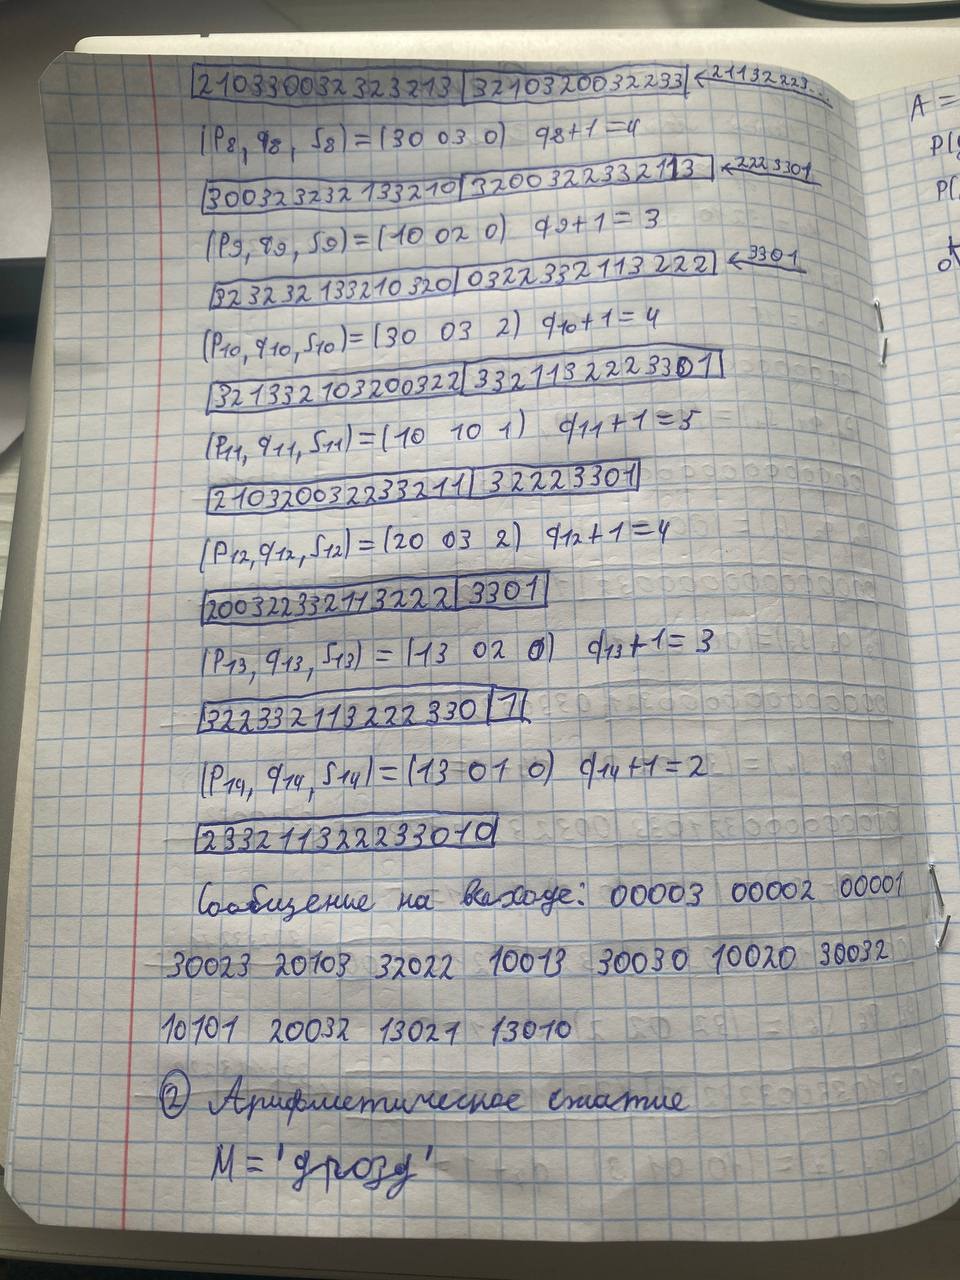 210330032323213 3210320032233 ← 21132223...
(p8, q8, s8) = (30 03 0) q8+1=4
300323232133210 3200322332113 ← 2223301
(p9, q9, s9) = (10 02 0) q9+1=3
323232133210320 0322332113222 ← 3301
(p10, q10, s10) = (30 03 2) q10+1=4
321332103200322 3321132223301
(p11, q11, s11) = (10 10 1) q11+1=5
210320032233211 32223301
(p12, q12, s12) = (20 03 2) q12+1=4
200322332113222 3301
(p13, q13, s13) = (13 02 0) q13+1=3
322332113222330 1
(p14, q14, s14) = (13 01 0) q14+1=2
233211322233010
Сообщение на выходе: 00003 00002 00001
30023 20103 32022 10013 30030 10020 30032
10101 20032 13021 13010
② Арифметическое сжатие
M = 'дрозд'
A =
P(
P(